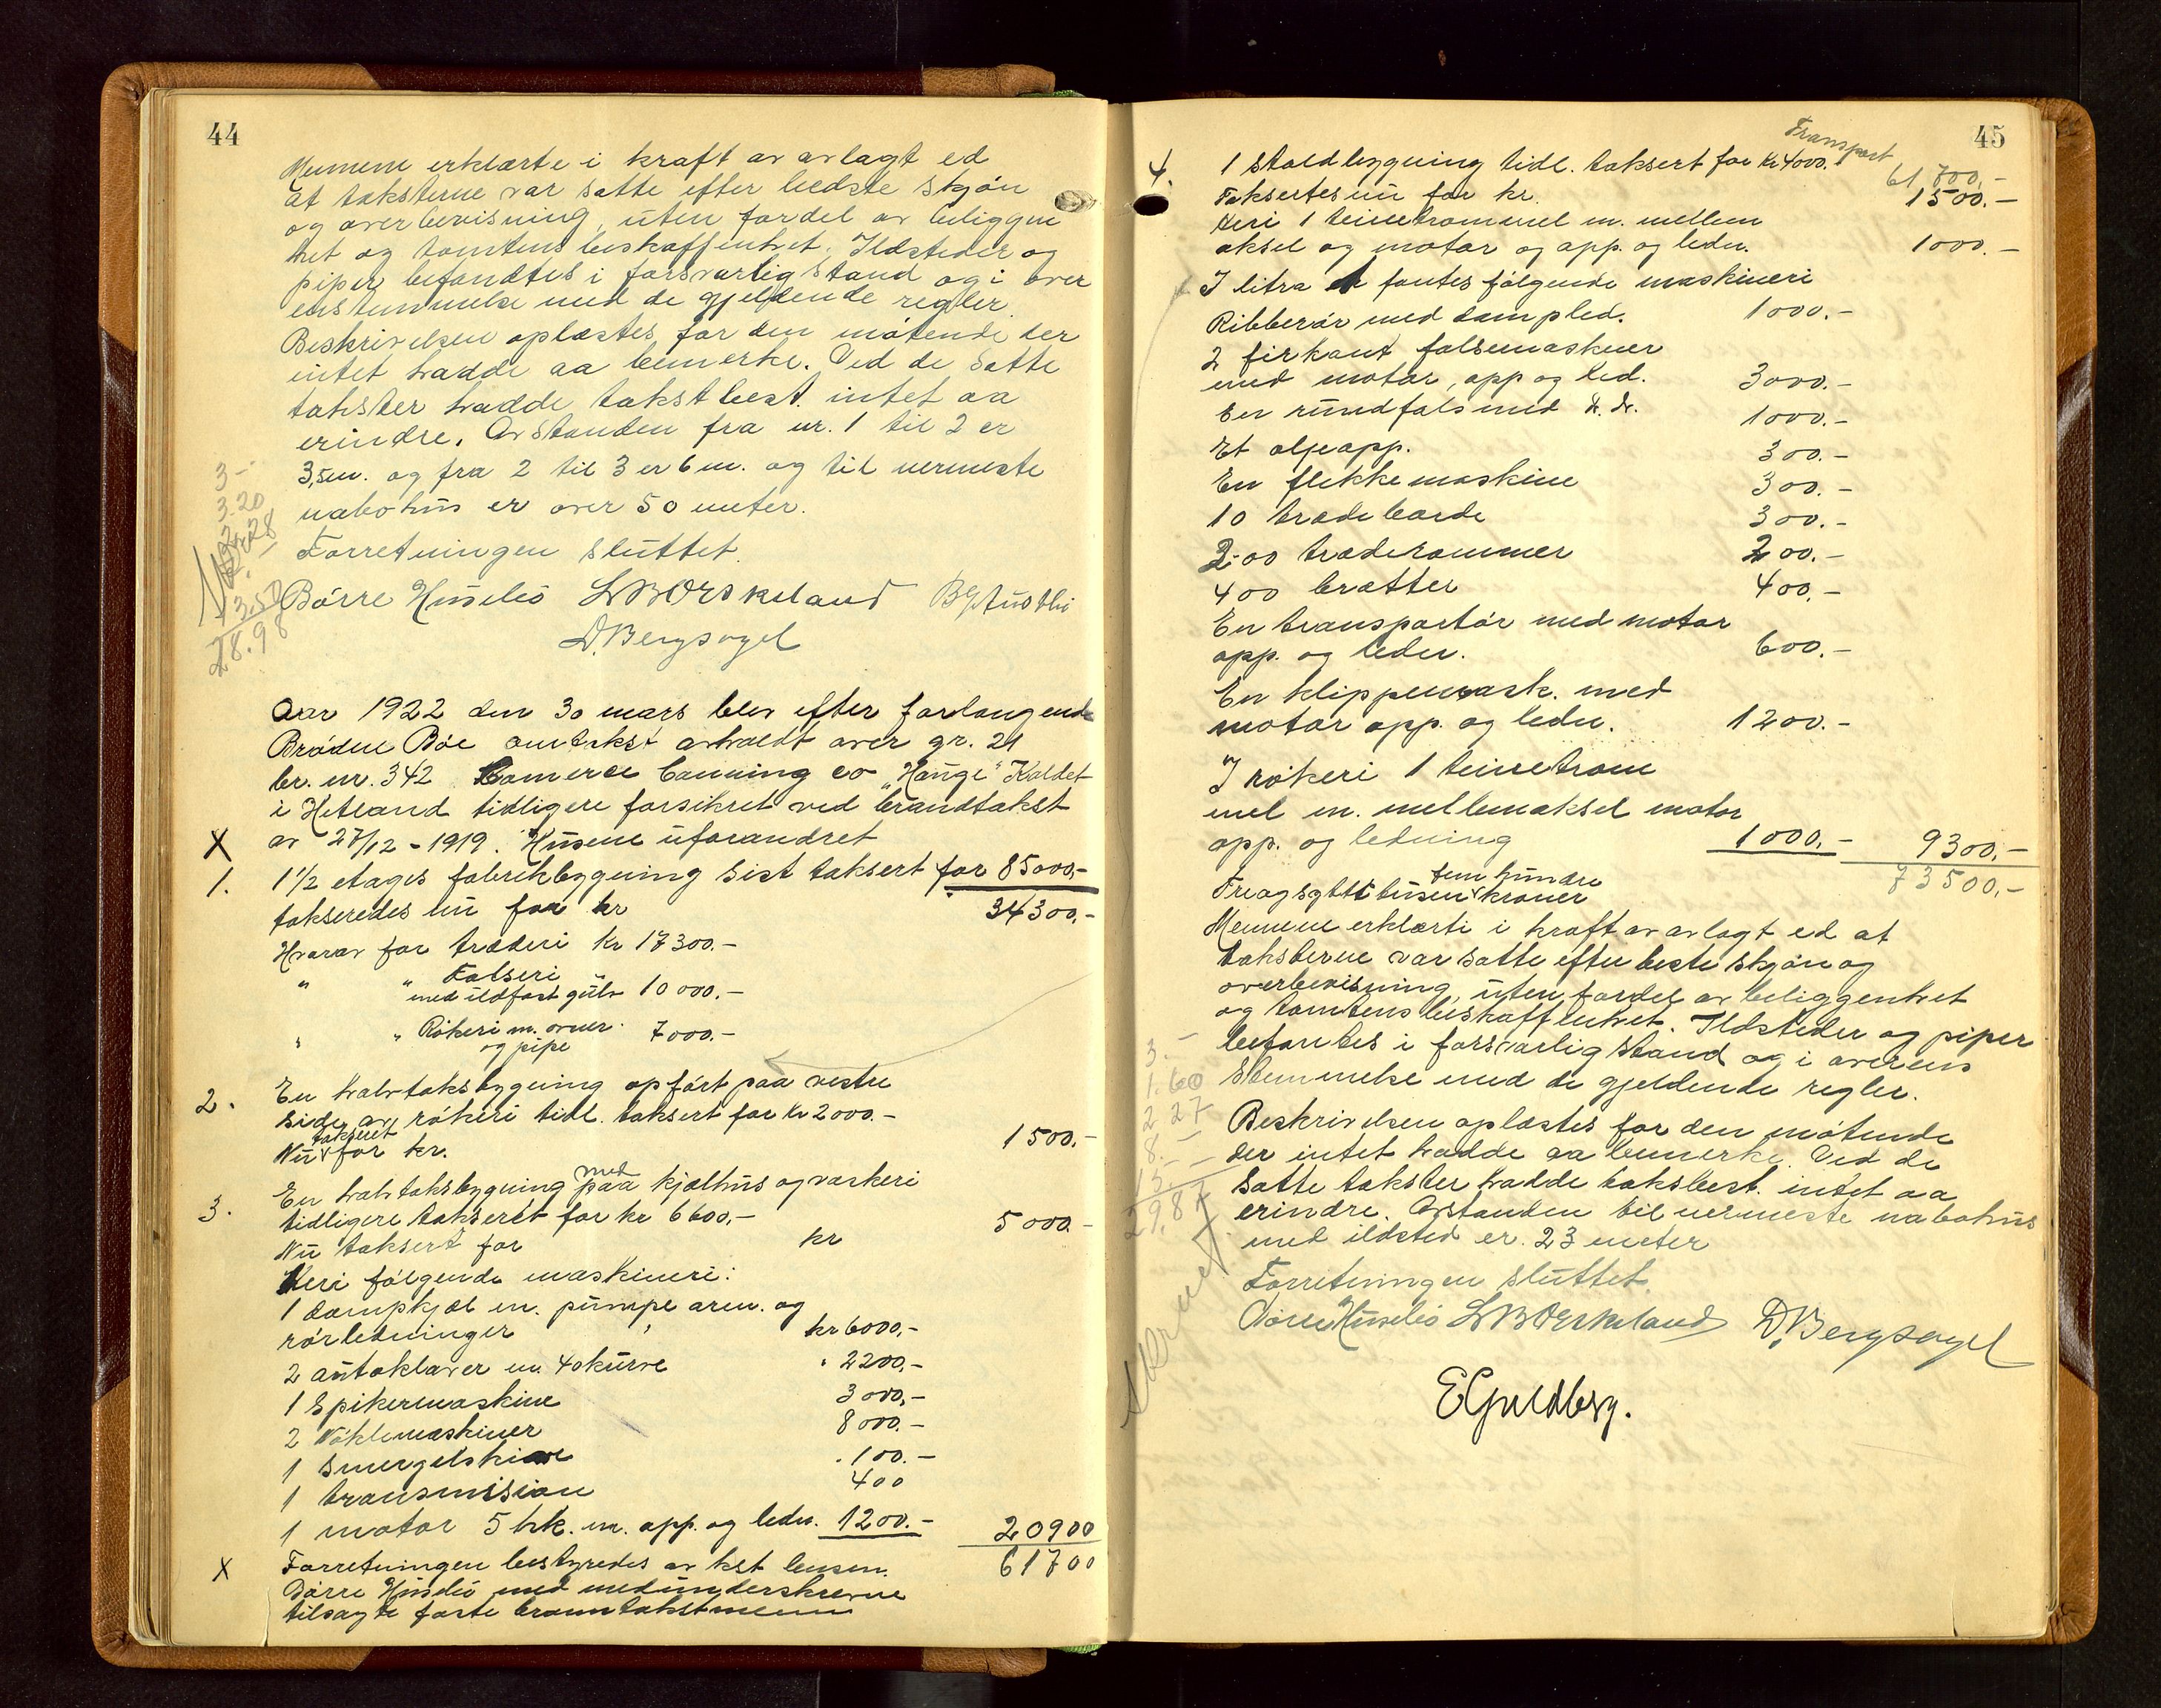 44
Mennene erklærte i kraft av avlagt ed
at taksterne var satte efter bedste skjøn
og overbevisning, uten fordel av beliggen
het og tomtens beskaffenhet. Ildsteder og
piper befandtes i forsvarlig stand og i over
enstemmelse med de gjeldende regler.
Beskrivelsen oplæstes for den møtende der
intet hadde aa bemerke. Ved de satte
takster hadde takstbest. intet aa
erindre. Avstanden fra nr. 1 til 2 er
3,5m. og fra 2 til 3 er 6 m. og til nermeste
nabohus er over 50 meter.
Forretningen sluttet.
3-
3.20
13.50
28.98
Børre Husebø LBOrskeland
D. Bergsagel
Aar 1922 den 30 mars blev efter forlangende
Brødne Bøe omtakst avholdt over gr. 21
br. nr. 342 Comerce Canning co "Hauge" Kaldet
i Hetland tidligere forsikret ved brandtakst
X av 27/12 - 1919. Husene uforandret
1. 1 1/2 etages fabrikbygning sist taksert for 85000,-
takseredes nu for kr 34300,-
Hvorav for træderi kr 17300.-
" " Falseri
med ildfast gulv 10000.-
" " Røkeri m. ovner
og pipe 7000.-
2. En halvtaksbygning opført paa vestre
side av røkeri tidl. taksert for kr 2000.-
takseret
Nu for kr. 1500,-
3. En halvtaksbygning paa med kjølhus og vaskeri
tidligere takseret for kr 6600,-
Nu taksert for kr 5000.-
Heri følgende maskineri:
1 dampkjel m. pumpe arm. og
rørledninger kr 6000,-
2 autoklaver m. 40 kurve " 2200,-
1 Spikermaskine 3000,-
2 Nøklemaskiner 8000.-
1 smergelskive 100.-
1 transmision 400
1 motor 5 hk. m. app. og ledn. 1200.- 20900
X Forretningen bestyredes av kst lensm. 61700
Børre Husebø med medunderskrevne
tilsagte faste branntakstmenn
45
Transport
61700,-
4. 1 staldbygning tidl. taksert for Kr 4000.-
Taksertes nu for kr. 1500.-
Heri 1 teinetrommel m. mellem
aksel og motor og app. og ledn. 1000.-
I litra A fantes følgende maskineri
Ribberør med dampled. 1000.-
2 firkant falsemaskiner
med motor, app og led. 3000.-
En rundfals med d. d. 1000.-
Et oljeapp. 300.-
En flekkemaskine 300.-
10 trædeborde 300.-
200 træderammer 200.-
400 bretter 400.-
En transportør med motor
app. og leder. 600.-
En klippemask. med
motor app. og ledn. 1200.-
I røkeri 1 teinetrom
mel m. mellemaksel motor
app. og ledning 1000.- 9300.-
73500,-
fem hundre
Treogsytti tusen kroner
Mennene erklærte i kraft av avlagt ed at
taksterne var satte efter beste skjøn og
overbevisning, uten fordel av beliggenhet
og tomtens beskaffenhet. Ildsteder og piper
befantes i forsvarlig stand og i overens
stemmelse med de gjeldende regler.
Beskrivelsen oplæstes for den møtende
der intet hadde aa bemerke. Ved de
satte takster hadde takstbest. intet aa
erindre. Avstanden til nermeste nabohus
med ildsted er 23 meter
Forretningen sluttet.
3.-
1.60
2.27
8.-
15.-
29.87
Børre Husebø LBOrskeland D. Bergsagel
E Guldberg.